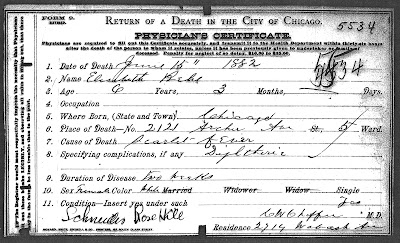 FORM 9.
RETURN OF A DEATH IN THE CITY OF CHICAGO.
5534
PHYSICIAN'S CERTIFICATE.
Physicians are required to fill out this Certificate accurately, and transmit it to the Health Department within thirty-six hours
after the death of the person to whom it relates,
5534
1. Date of Death June 15" 1882
2. Name Elizabeth
3. Age 6 Years, 3 Months, Days.
4. Occupation
5. Where Born, (State and Town) Chicago
6. Place of Death—No. 2121 Archer Ave St., 5 Ward.
7. Cause of Death Scarlet Fever
8. Specifying complications, if any Diphtheria
9. Duration of Disease two weeks
10. Sex Female Color White Married Widower Widow Single
11. Condition—Insert yes under such Yes
Rose Hill
M.D.
Residence 2719 Wabash Av